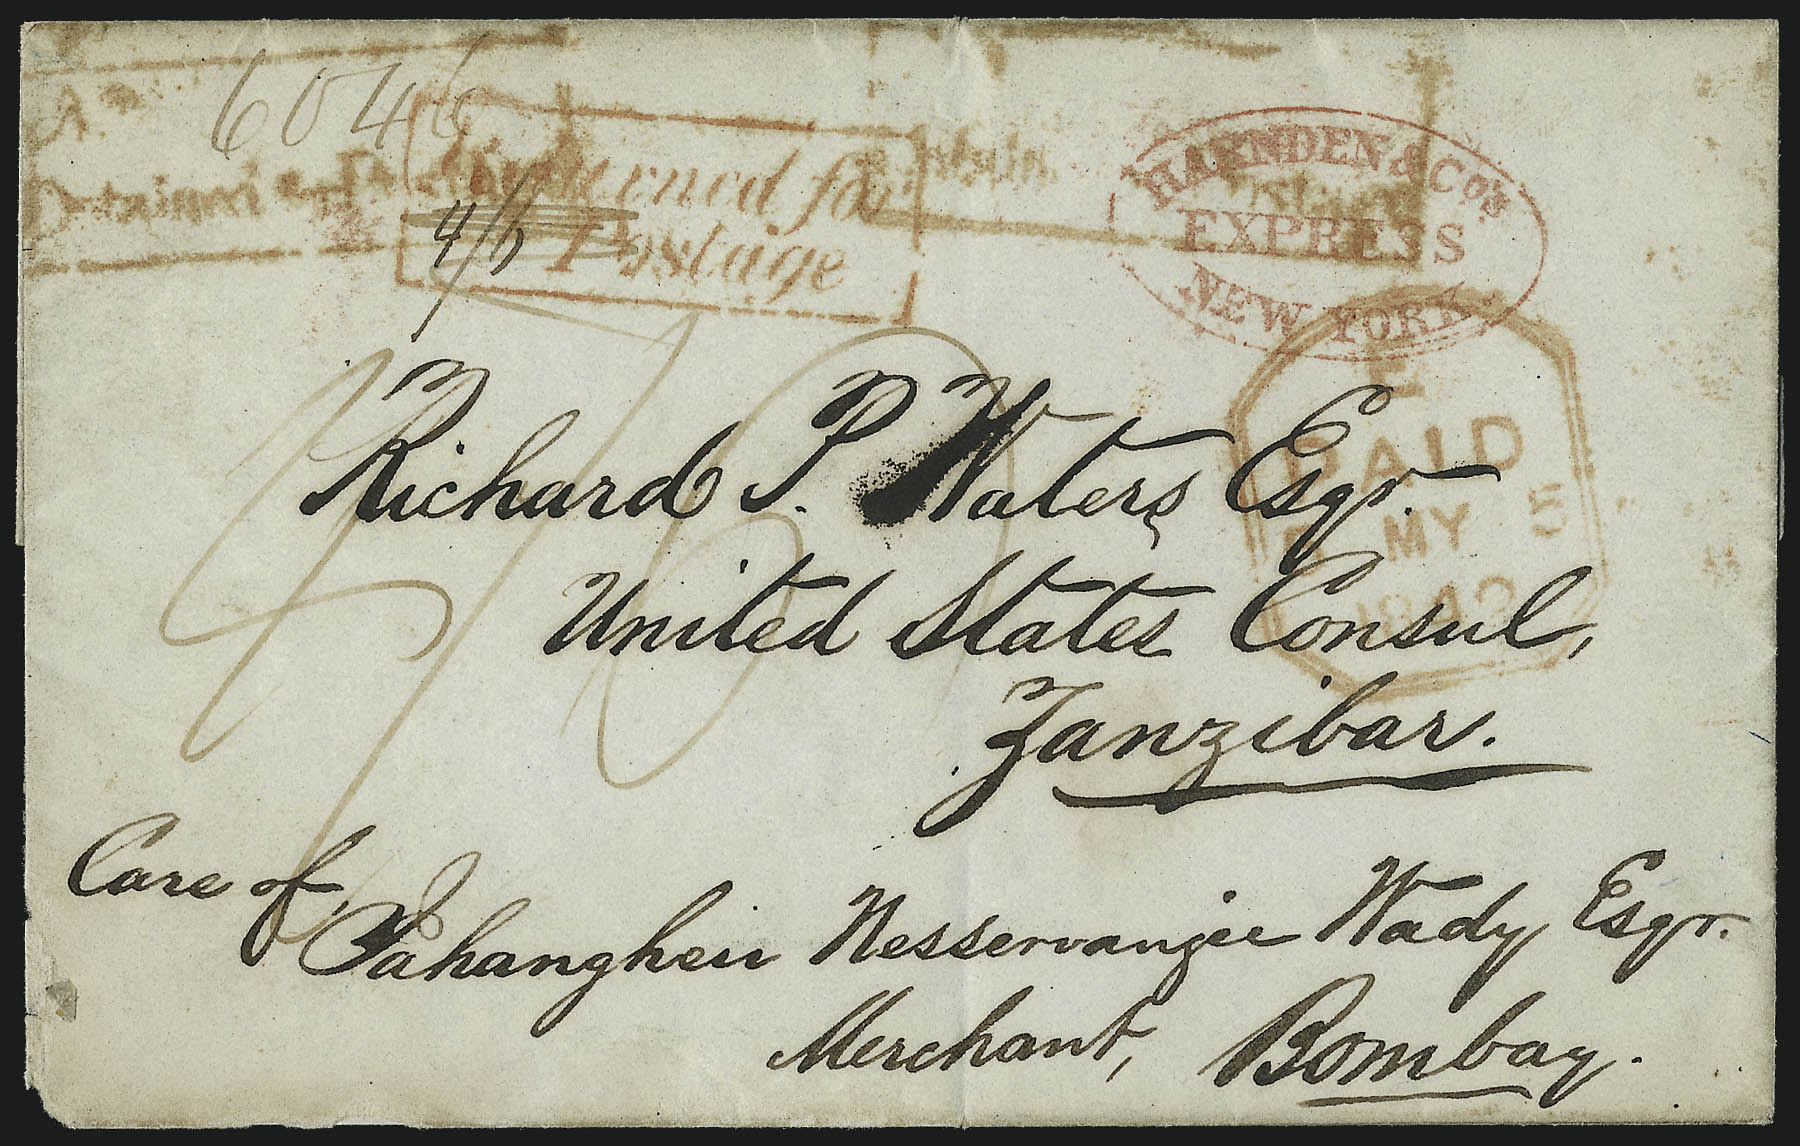 6046
Detained for Postage
Returned for
Postage
4/6
HARNDEN & Co's
EXPRESS
NEW YORK
E
PAID
MY 5
1842
Richard P. Waters Esqr.
United States Consul,
Zanzibar.
Care of
Jahangheir Nesservanjee Wady Esqr.
Merchant, Bombay.